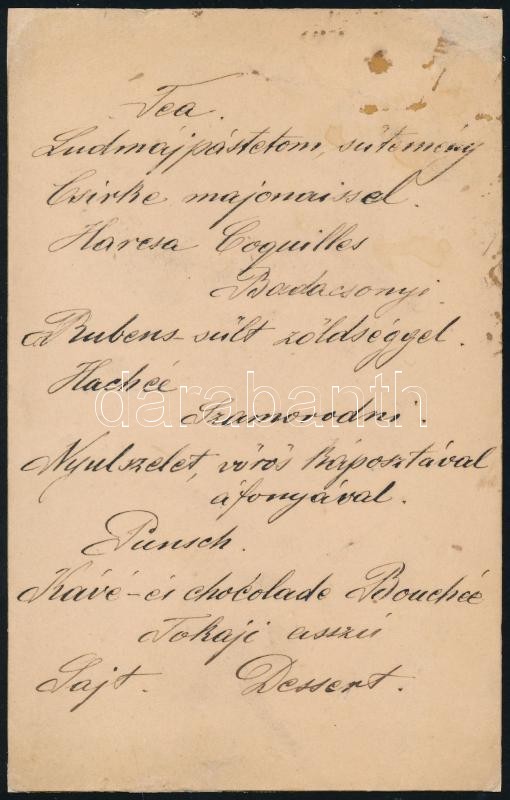 Tea.
Ludmájpástetom, sütemény
Csirke majonaissel.
Harcsa Coquilles
Badacsonyi.
Rubens-sült zöldséggel.
Hachée
darabanth
Szamorodni.
Nyulszelet, vörös káposztával
áfonyával.
Punsch.
Kávé-és chocolade Bouchée
Tokaji asszú
Sajt. Dessert.